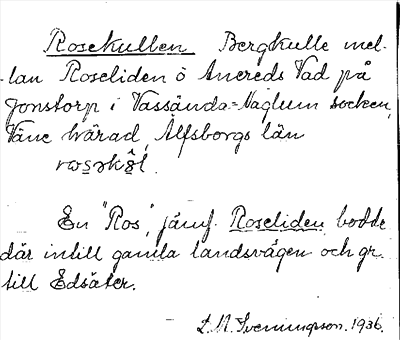 Rosekullen Bergkulle mel-
lan Roseliden o Anereds Vad på
Jonstorp i Vassända-Naglum socken,
Väne härad, Älfsborgs län

En "Ros", jämf. Roseliden bodde
där intill gamla landsvägen och gr.
till Edsäter.
1936.